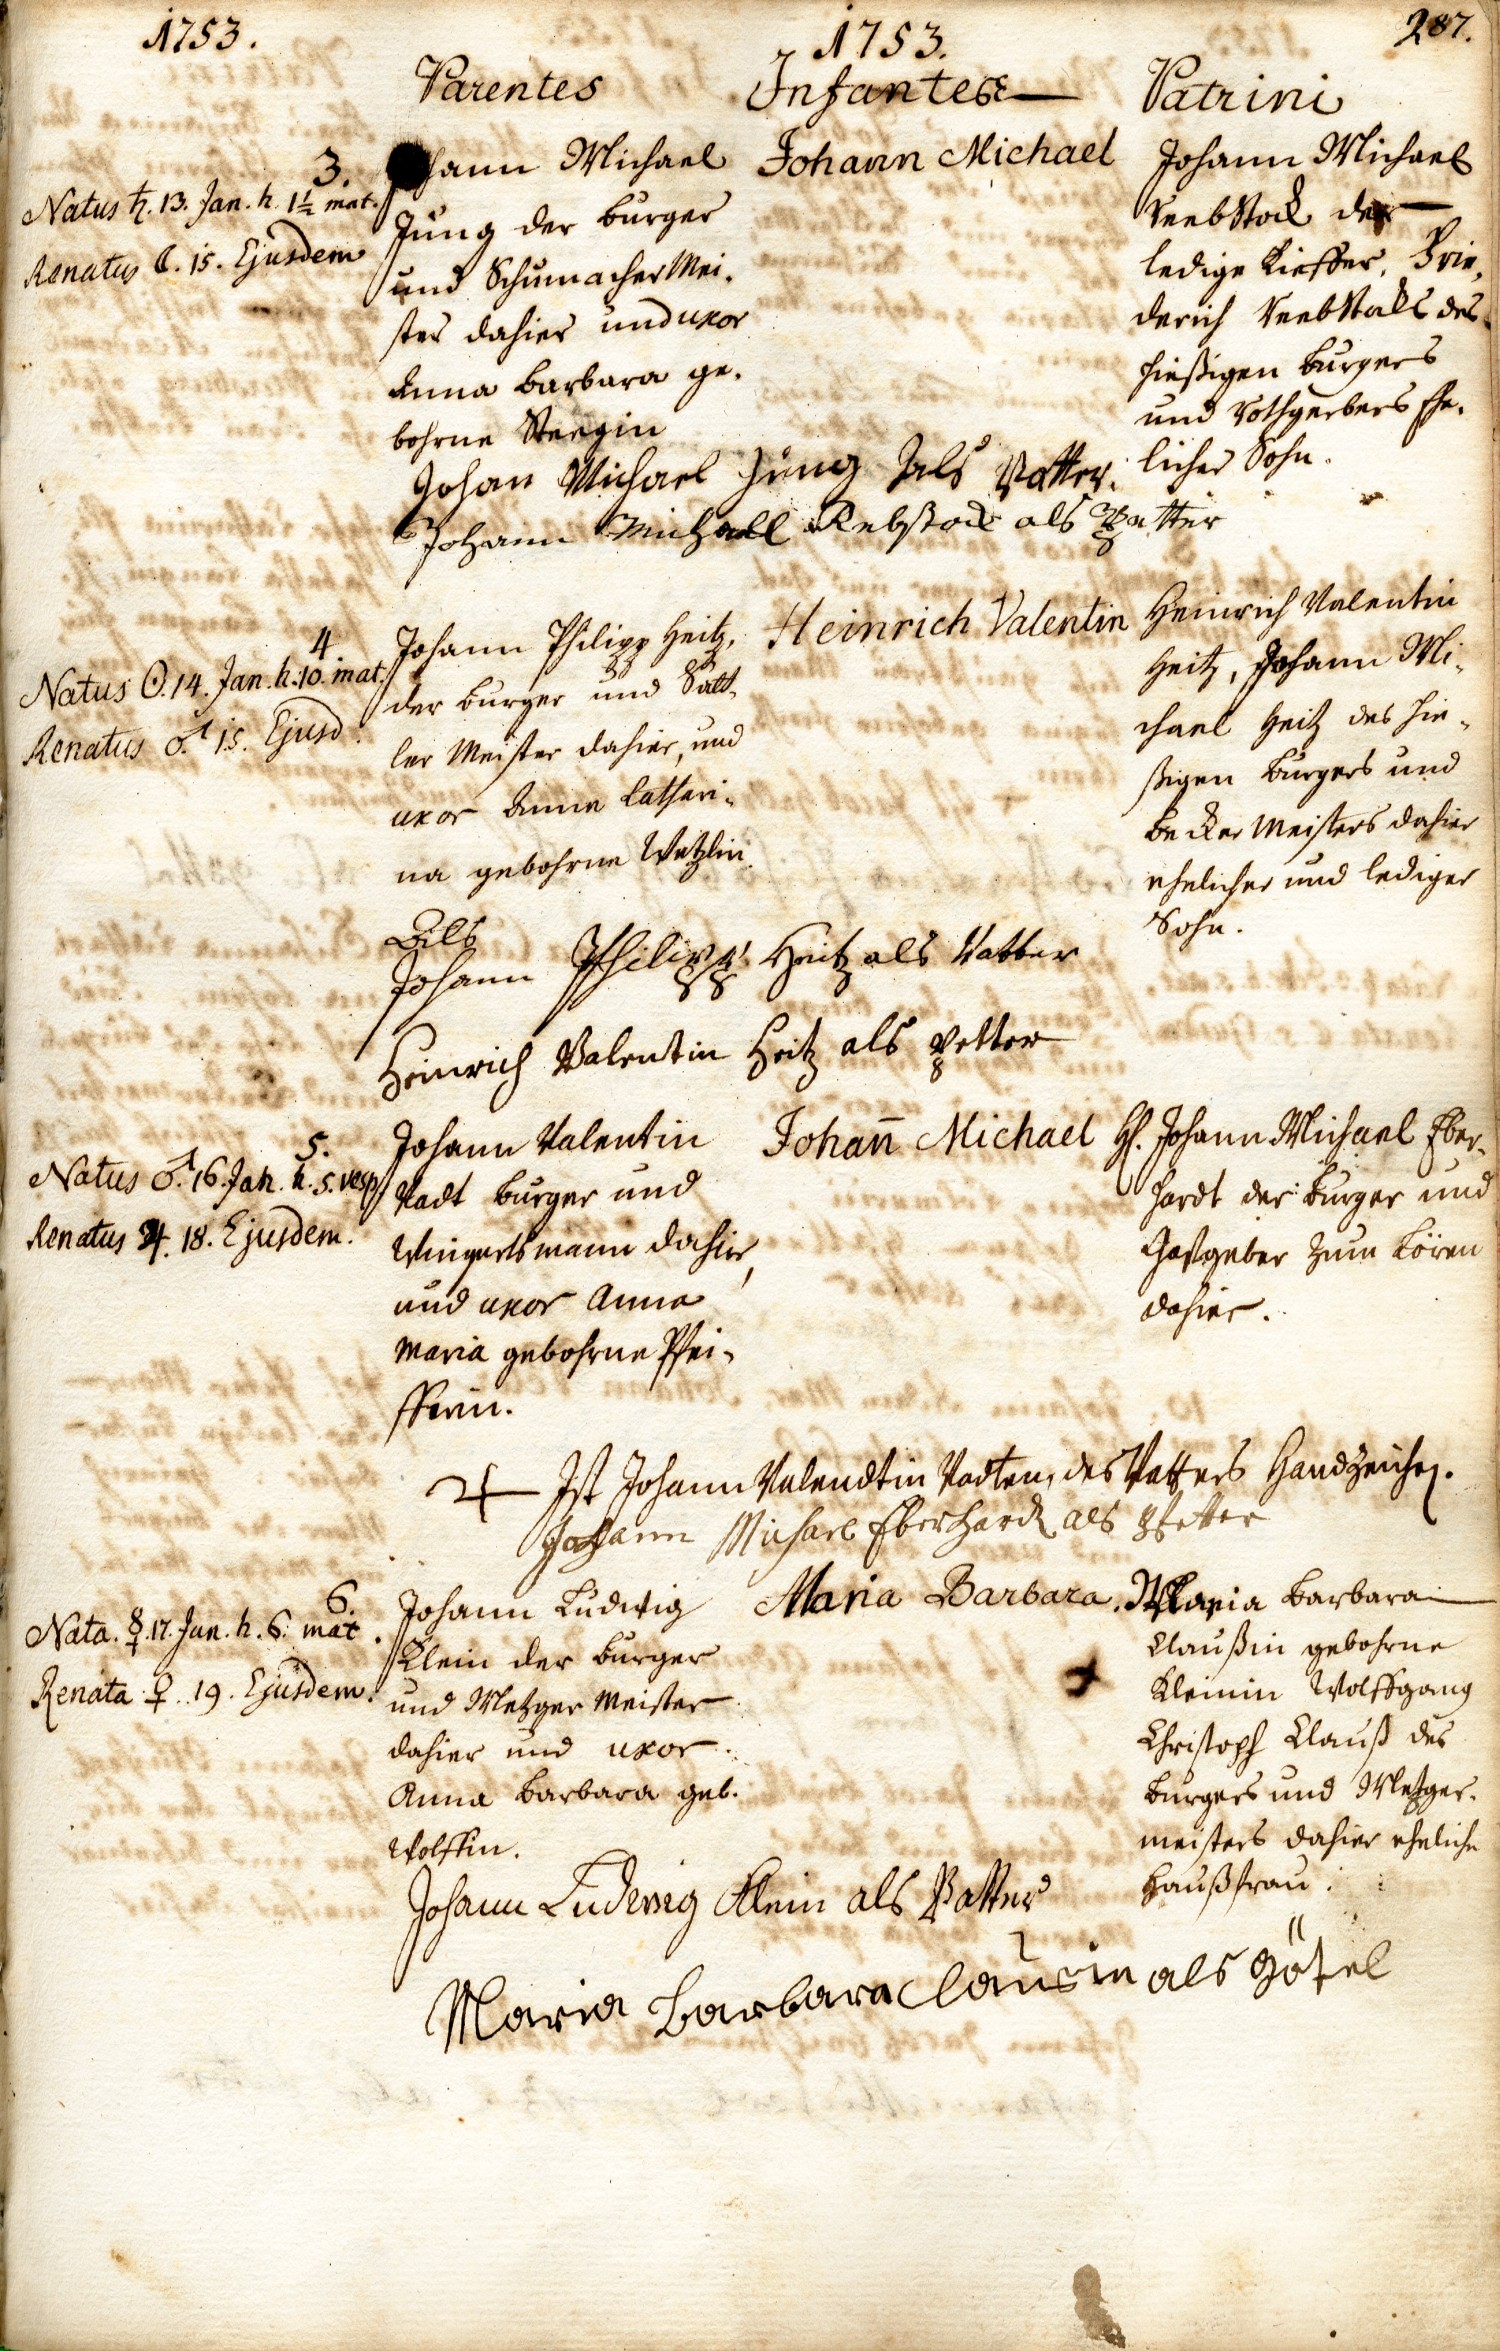 1753.
1753.
287.
Parentes
Infantes
Patrini
3.
Natus ♄. 13. Jan. h. 1½ mat.
Renatus ☾. 15. Ejusdem
Johann Michael
Jung der burger
und Schumacher Mei-
ster dahier und uxor
Anna barbara ge-
bohrne
Johann Michael
Johann Michael
Reebstock der
ledige Kieffer, Frie-
derich Reebstocks des
hießigen burgers
und Rothgerbers Ehe-
licher Sohn.
Johan Michael Jung Als Vatter.
Johann Michaell Rebstock als Petter
4.
Natus ☉. 14. Jan. h. 10. mat.
Renatus ♂ 15. Ejusd.
Johann Philipp Heitz,
der burger und Satt-
ler Meister dahier, und
uxor Anna Cathari-
na gebohrne Wetzlin.
Heinrich Valentin
Heinrich Valentin
Heitz, Johann Mi-
chael Heitz des hie-
ßigen burgers und
becker Meisters dahier
ehelicher und lediger
Sohn.
Als
Johann Philipp Heitz als Vatter
Heinrich Valentin Heitz als petter
5.
Natus ♂. 16. Jan. h. 5. vesp.
Renatus ♃. 18. Ejusdem.
Johann Valentin
Vadt burger und
Wingertsmann dahier,
und uxor Anna
Maria gebohrne Pfei-
fferin.
Johan̄ Michael
H. Johann Michael Eber-
hardt der burger und
Gastgeber zum Löwen
dahier.
Ist Johann Valendtin Vadten, des Vatters Handzeichen.
Johann Michael Eberhardt als Petter
6.
Nata. ☿. 17. Jan. h. 6. mat.
Renata ♀. 19. Ejusdem.
Johann Ludwig
Klein der burger
und Metzger Meister
dahier und uxor.
Anna barbara geb.
Wolffin.
Maria Barbara.
Maria barbara
Claußin gebohrne
Kleinin Wolffgang
Christoph Clauß des
burgers und Metzger-
meisters dahier eheliche
Haußfrau.
Johann Ludewig Klein als Vatter
Maria barbara Clausin als götel